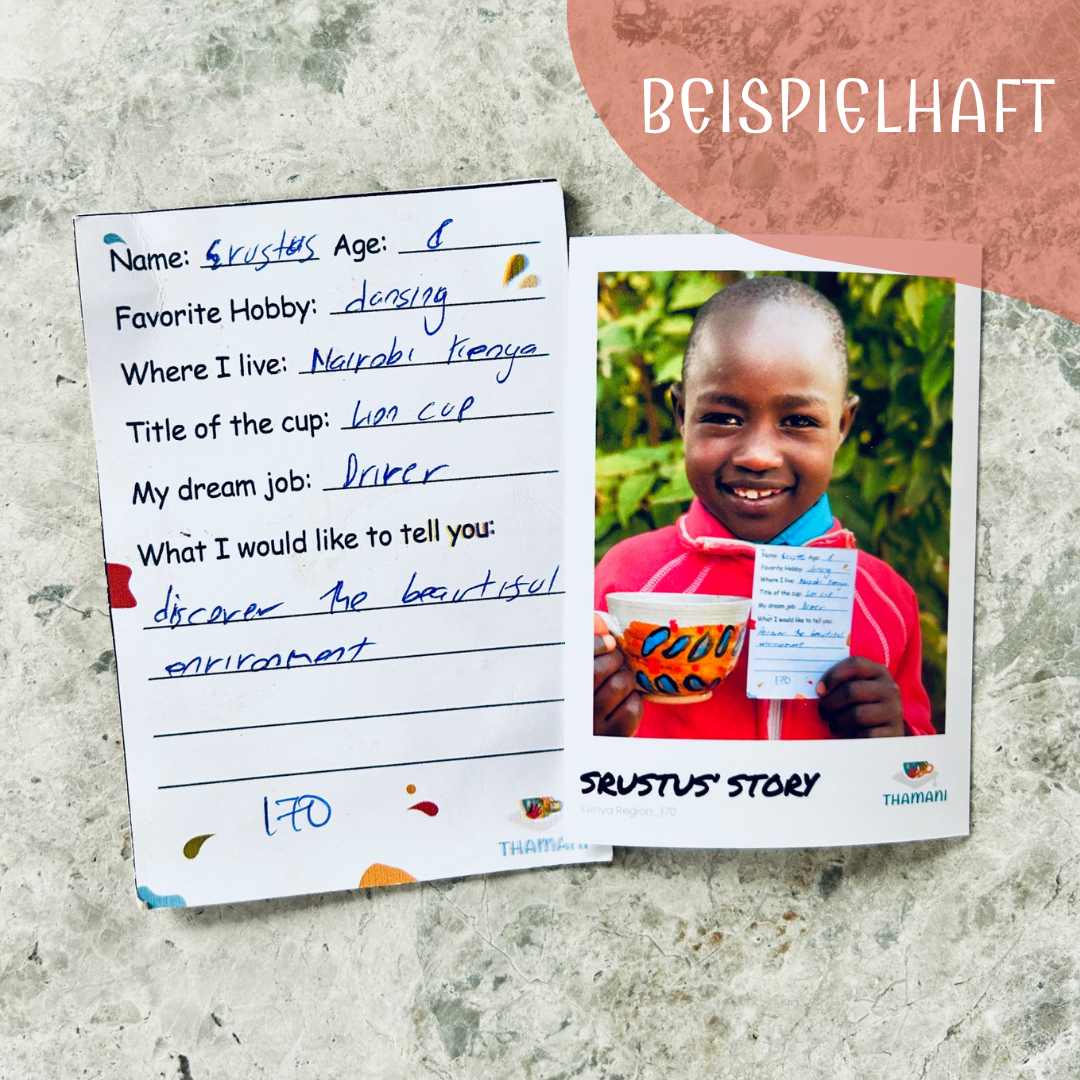 BEISPIELHAFT
Name: Srustus Age:
Favorite Hobby: dansing
Where I live: Nairobi Kenya
Title of the cup: Lion cup
My dream job: Driver
What I would like to tell you:
discover the beautiful
environment
170
THAMANI
SRUSTUS' STORY
Kenya Region_170
THAMANI
Name: Srustus Age:
Favorite Hobby: dansing
Where I live: Nairobi Kenya
Title of the cup: Lion cup
My dream job: Driver
What I would like to tell you:
discover the beautiful
environment
170